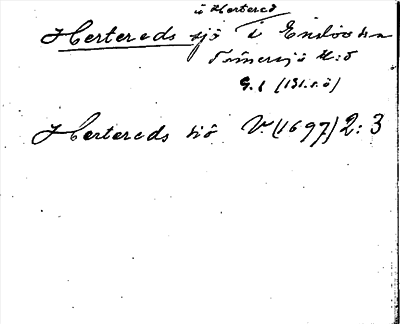 u Hertered
Hertereds sjö i Enslövs sn
Tönnersjö H:d
G.1 (131.s.ö)
Hertereds siö V.(1697) 2:3